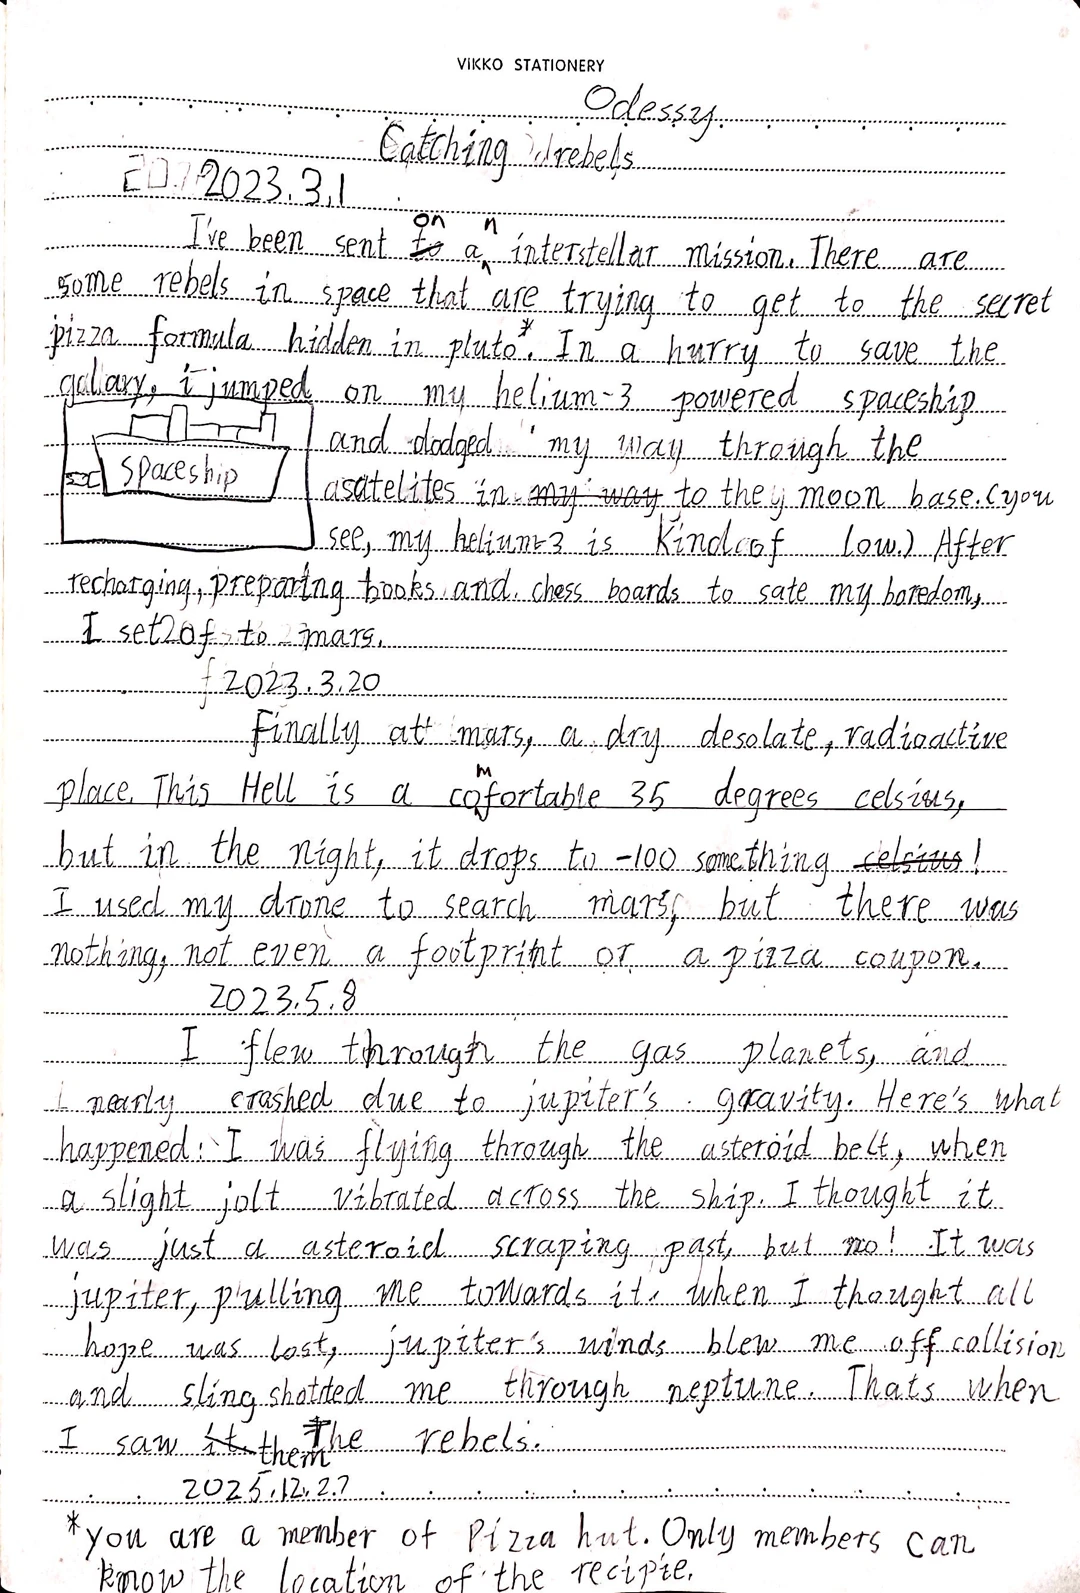 VIKKO STATIONERY
Odessy
Catching rebels
2023.3.1
on n
I've been sent to a interstellar mission. There are
some rebels in space that are trying to get to the secret
pizza formula hidden in pluto*. In a hurry to save the
galaxy, i jumped on my helium-3 powered spaceship
and dodged my way through the
spaceship
asatelites in my way to the moon base. (you
see, my helium-3 is kind of low.) After
recharging, preparing books and chess boards to sate my boredom,
I set of to mars.
2023.3.20
Finally at mars, a dry desolate, radioactive
m
place. This Hell is a cofortable 35 degrees celsius,
but in the night, it drops to -100 something celsius!
I used my drone to search mars, but there was
nothing, not even a footprint or a pizza coupon.
2023.5.8
I flew through the gas planets, and
I nearly crashed due to jupiter's gravity. Here's what
happened: I was flying through the asteroid belt, when
a slight jolt vibrated across the ship. I thought it
was just a asteroid scraping past, but no! It was
jupiter, pulling me towards it. when I thought all
hope was lost, jupiter's winds blew me off collision
and sling shotted me through neptune. Thats when
I saw it them The rebels.
2025.12.27
*you are a member of Pizza hut. Only members can
know the location of the recipie.